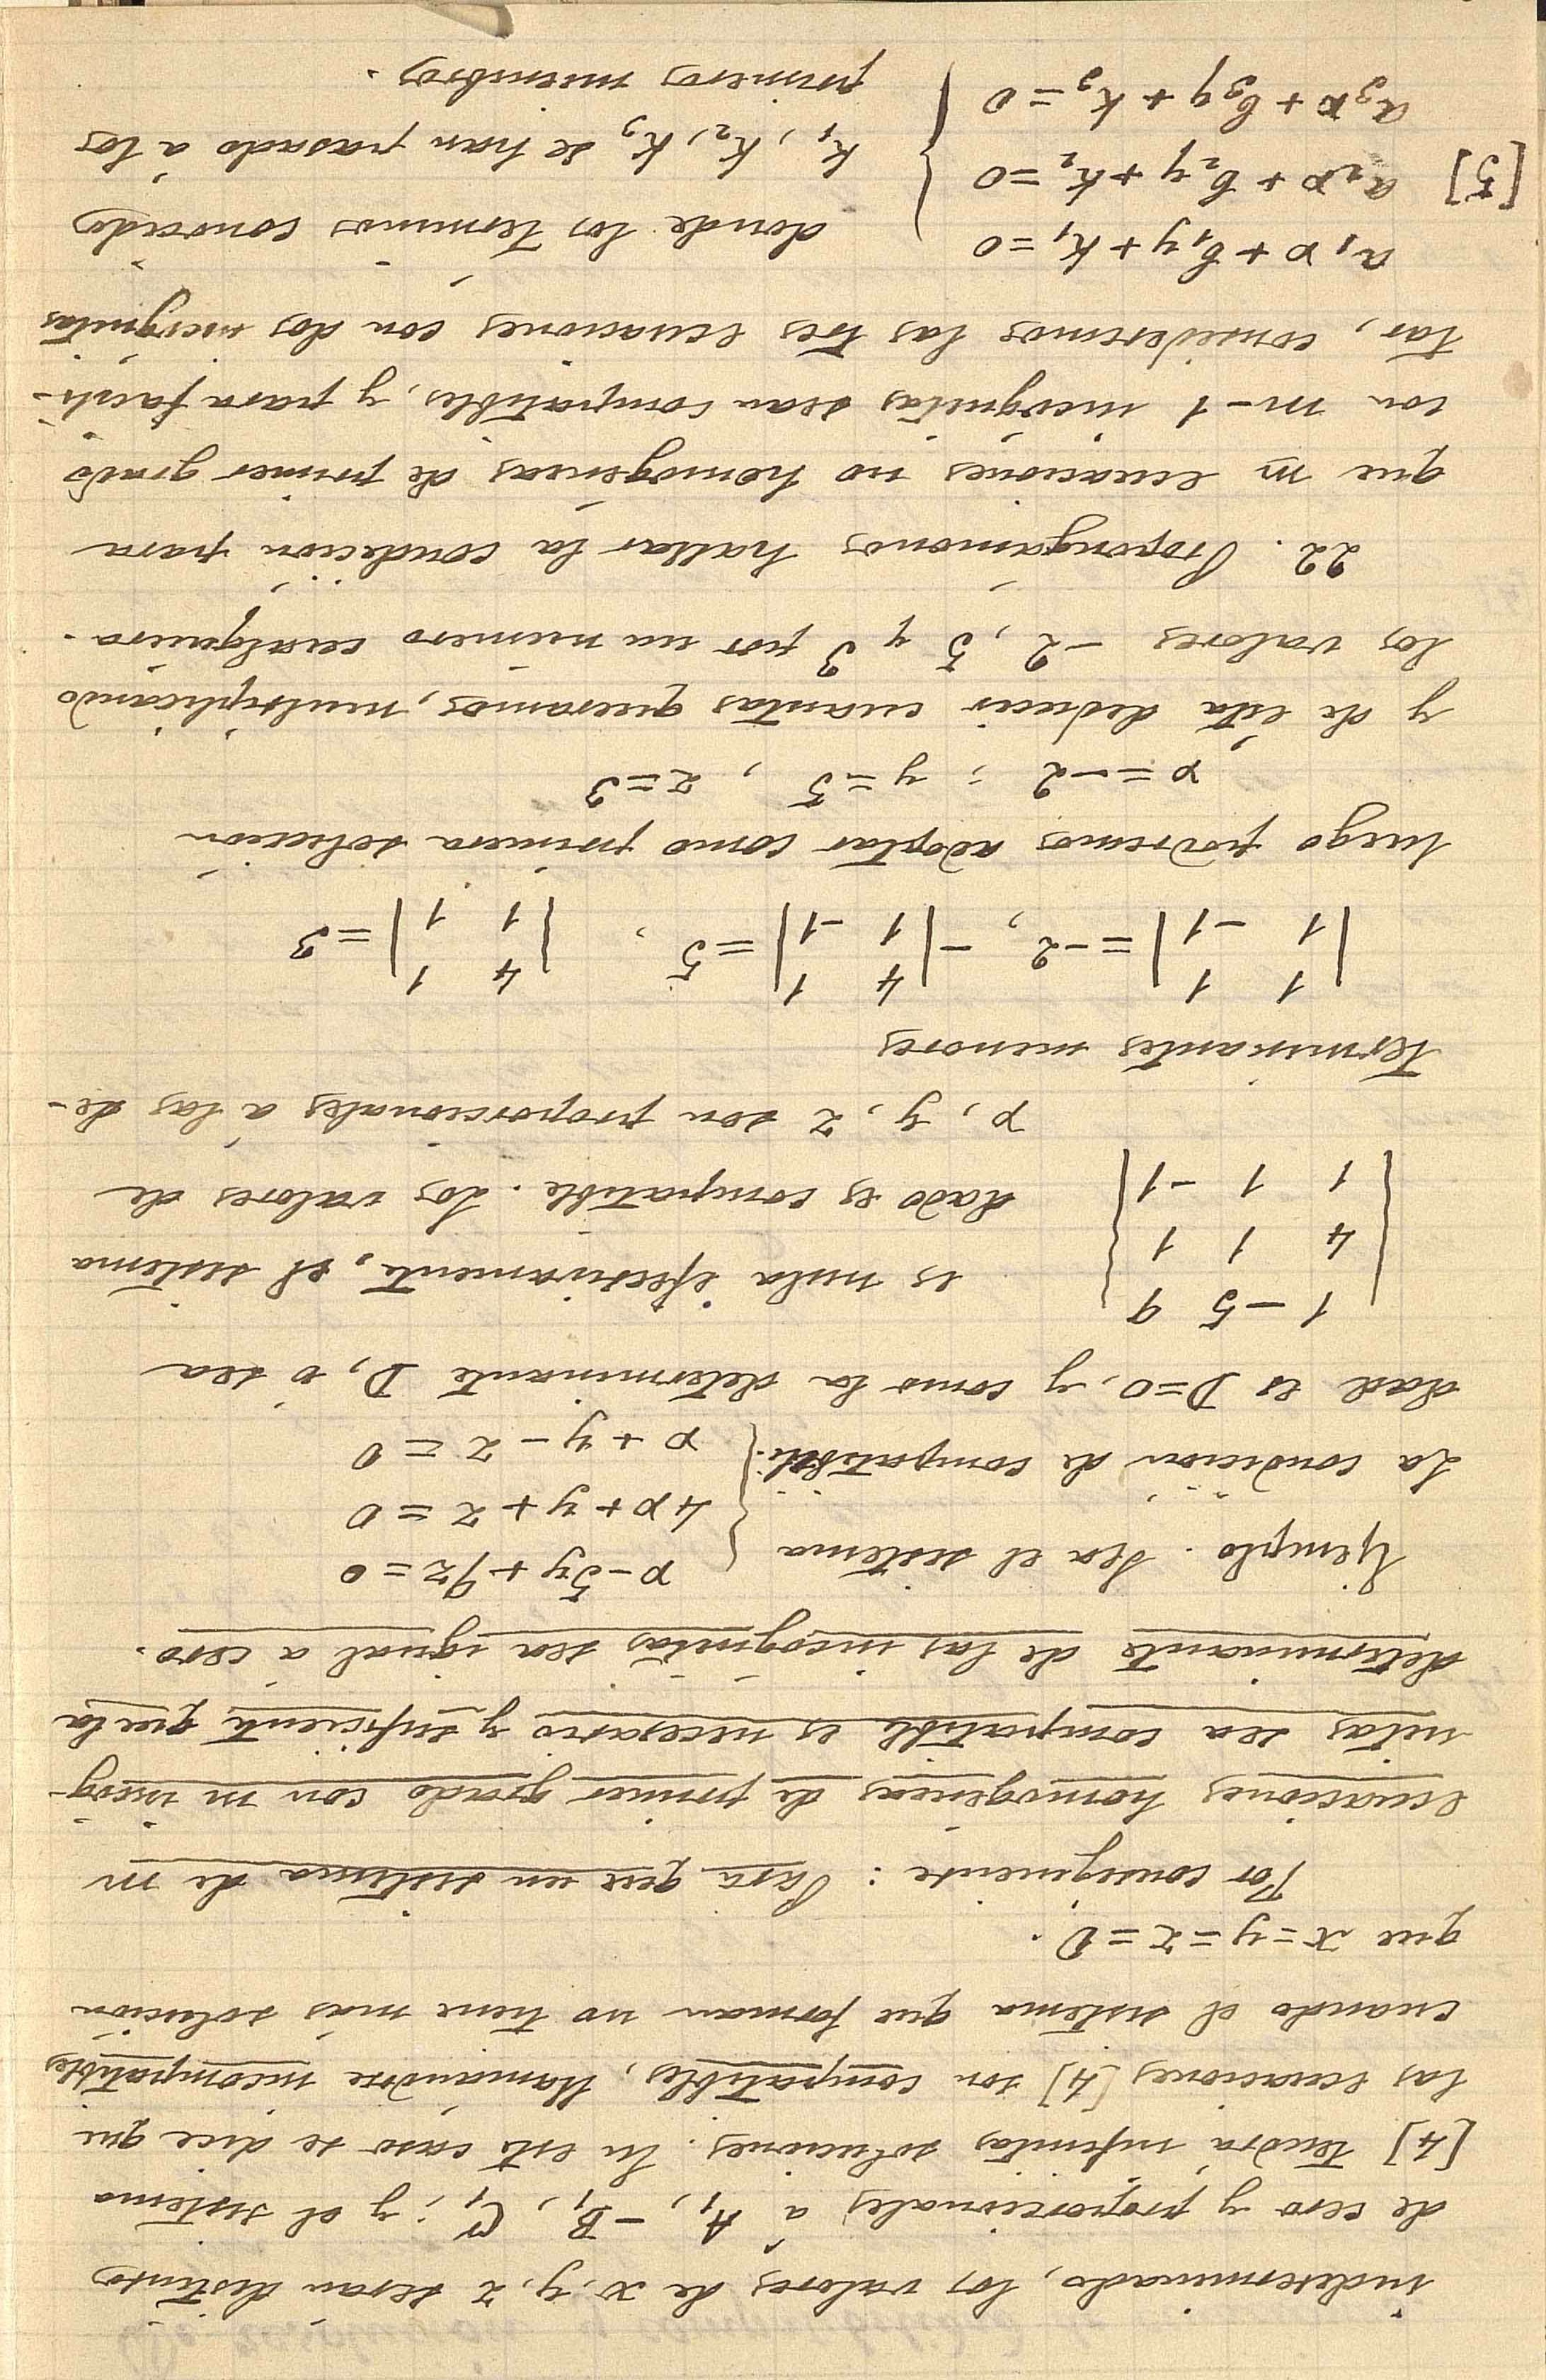 indeterminado, los valores de x, y, z serán distintos
de cero y proporcionales á A₁, -B₁, C₁; y el sistema
[4] tendrá infinitas soluciones. En este caso se dice que
las ecuaciones [4] son compatibles, llamándose incompatibles
cuando el sistema que forman no tiene más solución
que x=y=z=0.
Por consiguiente: Para que un sistema de m
ecuaciones homogéneas de primer grado con m incóg-
nitas sea compatible es necesario y suficiente que la
determinante de las incógnitas sea igual a cero.
Ejemplo. Sea el sistema { x-5y+9z=0
4x+y+z=0
x+y-z=0
La condición de compatibili-
dad es D=0, y como la determinante D, o sea
| 1 -5 9 |
| 4 1 1 |
| 1 1 -1 |
es nula efectivamente, el sistema
dado es compatible. Los valores de
x, y, z son proporcionales á las de-
terminantes menores
| 1 1 |
| 1 -1 | = -2, - | 4 1 |
| 1 -1 | = 5, | 4 1 |
| 1 1 | = 3
luego podremos adoptar como primera solución
x=-2; y=5, z=3
y de ésta deducir cuantas queramos, multiplicando
los valores -2, 5 y 3 por un número cualquiera.
22. Propongámonos hallar la condición para
que m ecuaciones no homogéneas de primer grado
con m-1 incógnitas sean compatibles, y para facili-
tar, consideremos las tres ecuaciones con dos incógnitas
[5] a₁x+b₁y+k₁=0
a₂x+b₂y+k₂=0
a₃x+b₃y+k₃=0 }
donde los términos conocidos
k₁, k₂, k₃ se han pasado á los
primeros miembros.